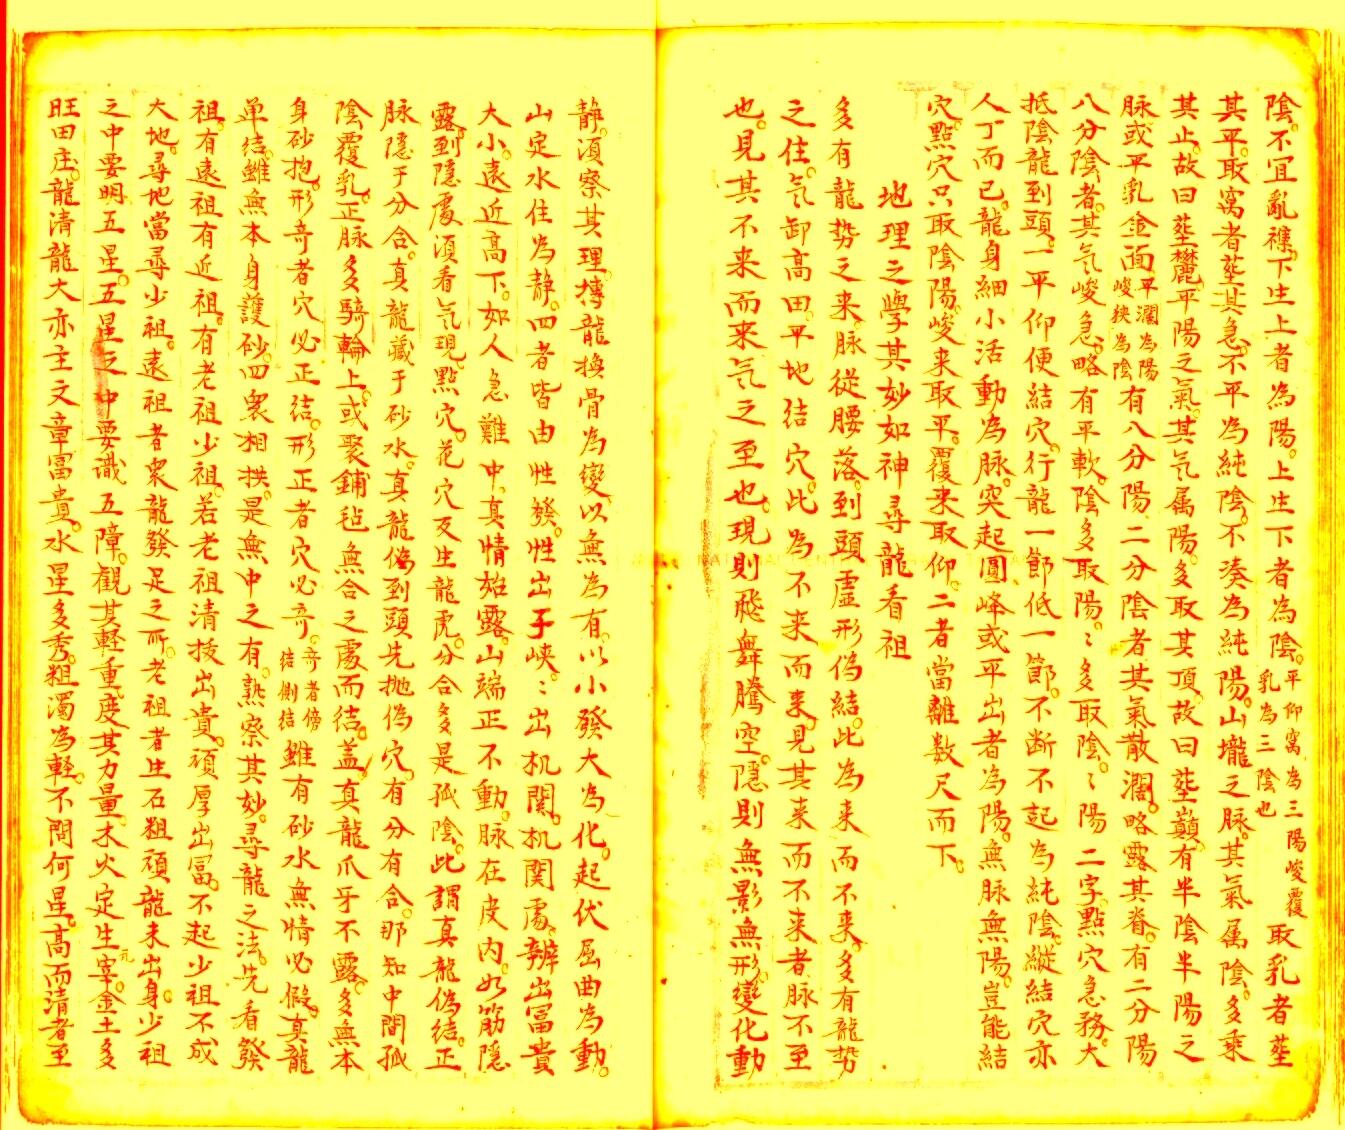 陰不宜亂襍下生上者為陽上生下者為陰平仰窩為三陽峻覆乳為三陰也取乳者塟
其平取窩者塟其急不平為純陰不凑為純陽山壠之脉其氣属陰多乘
其止故曰塟麓平陽之氣其気属陽多取其頂故曰塟巔有半陰半陽之
脉或平乳金面平濶為陽峻狹為陰有八分陽二分陰者其氣散濶略露其脊有二分陽
八分陰者其気峻急略有平軟陰多取陽〻多取陰〻陽二字點穴急務大
抵陰龍到頭一平仰便結穴行龍一節低一節不断不起為純陰縱結穴亦
人丁而已龍身細小活動為脉突起圓峰或平出者為陽無脉無陽豈能結
穴點穴只取陰陽峻来取平覆来取仰二者當離数尺而下
地理之學其妙如神尋龍看祖
多有龍势之来脉従腰落到頭虛形偽結此為来而不来多有龍势
之住気卸高田平地结穴此為不来而来見其来而不来者脉不至
也見其不来而来気之至也現則飛舞騰空隱則無影無形變化動
静湏察其理摶龍換骨為變以無為有以小發大為化起伏屈曲為動
山定水住為静四者皆由性發性出于峡〻出机関机関處辨出富貴
大小遠近高下如人急難中真情始露山端正不動脉在皮内如筋隱
露到隱處湏看気現點穴花穴反生龍虎分合多是孤陰此謂真龍偽結正
脉隱于分合真龍藏于砂水真龍偽到頭先抛偽穴有分有合那知中間孤
陰覆乳正脉多騎輪上或聚鋪毡無合之處而结盖真龍爪牙不露多無本
身砂抱形竒者穴必正结形正者穴必竒竒者傍结側结雖有砂水無情必假真龍
单结雖無本身護砂四衆相拱是無中之有熟察其妙尋龍之法先看發
祖有遠祖有近祖有老祖少祖若老祖清抜出貴頑厚出冨不起少祖不成
大地尋地當尋少祖遠祖者衆龍發足之所老祖者生石粗頑龍未出身少祖
之中要明五星五星之中要識五障觀其輕重度其力量木火定生宰元金土多
旺田庄龍清龍大亦主文章冨貴水星多秀粗濁為輕不問何星高而清者至